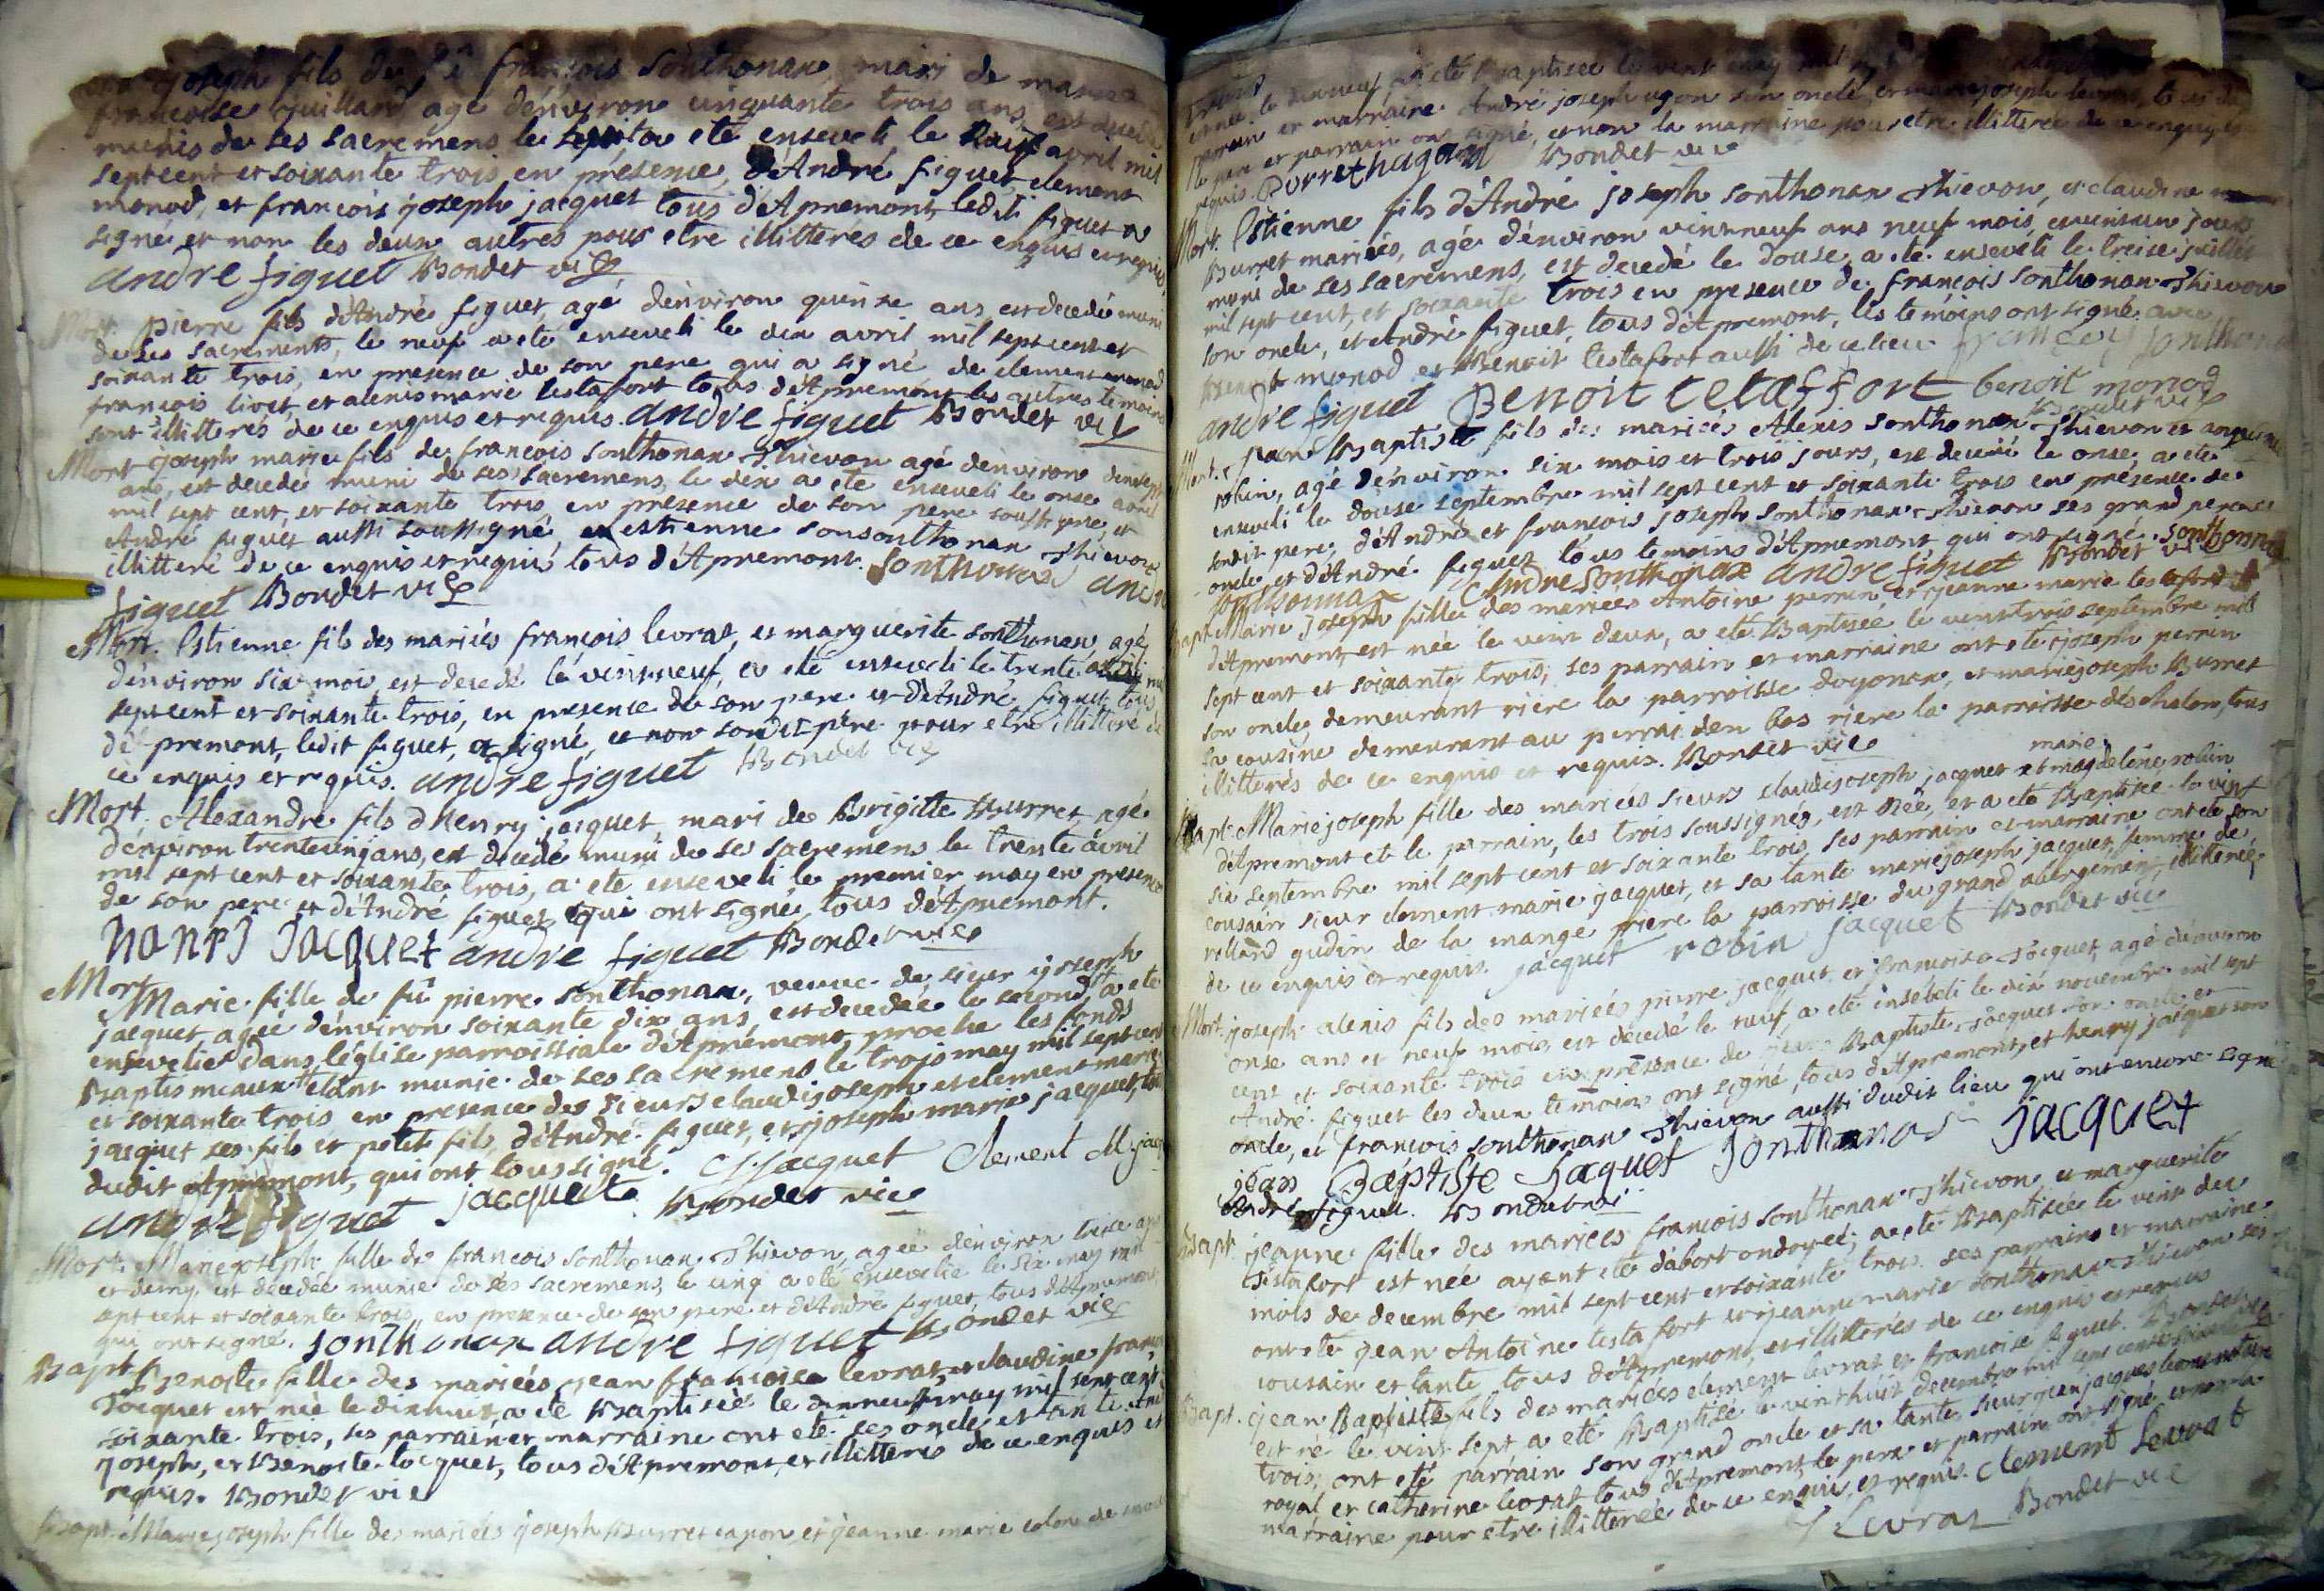 joseph fils de fû françois Sonthonax, mari de marie
françoise Guilland, agé d'énviron cinquante trois ans, est
munis de ses sacremens le sept a eté enseveli le huit avril mil
septcent et soixante trois en présence, d'André figuet, clement
monod, et françois joseph jacquet tous d'Apremont, ledit figuet a
signé et non les deux autres pour etre illitteres de ce enquis et requis.
andre figuet Bondet vic
Mort. pierre fils d'André figuet, agé d'énviron quinse ans, est decedé muni
de ses sacrements, le neuf a eté enseveli le dix avril mil septcent et
soixante trois, en presence de son pere qui a signé, de clement monod
françois livet, et alexis marie testafort tous d'Apremont les autres temoins
sont illitterés de ce enquis et requis. andre figuet Bondet vic
Mort joseph marie fils de françois Sonthonax Thievon agé d'énviron
ans, est decedé muni de ses sacremens, le dix a eté enseveli le onse avril
mil sept cent, et soixante trois, en presence de son pere soussigné, et
André figuet aussi soussigné, et estienne Sonthonax Thievon
illitteré de ce enquis et requis tous d'Apremont. Sonthonax andre
figuet Bondet vic
Mort. Estienne fils des mariés françois levrat, et marguerite Sonthonax, agé
d'énviron six mois, est decedé le vintneuf, a eté enseveli le trente avril mil
septcent et soixante trois, en presence de son pere et d'André figuet, tous
d'Apremont, ledit figuet, a signé, et non sondit pere pour etre illitteré de
ce enquis et requis. andre figuet Bondet vic
Mort. Alexandre fils d'henry jacquet, mari de Brigitte Burret, agé
d'énviron trentecinq ans, est decedé muni de ses sacremens le trente avril
mil sept cent et soixante trois, a eté enseveli le premier may en presence
de son pere et d'André figuet, qui ont signé, tous d'Apremont.
hanri jacquet andre figuet Bondet vic
Mort
Marie fille de fû pierre Sonthonax, veuve de sieur joseph
jacquet, ageé d'énviron soixante dix ans, est decedée le second, a eté
ensevelie dans l'église parroissiale d'Aprémont, proche les fonds
Baptismeaux étant munie de ses sacremens le trois may mil septcent
et soixante trois en presence des sieurs claudejoseph et clement marie
jacquet ses fils et petit fils, d'André figuet, et joseph marie jacquet, tous
dudit Apremont, qui ont tous signé. C j jacquet Clement M jacquet
andre figuet jacquet Bondet vic
Mort. Mariejoseph fille de françois Sonthonax Thievon, ageé d'énviron treise ans
et demy, est decedée munie de ses sacremens, le cinq a eté ensevelie le six may mil
sept cent et soixante trois, en presence de son pere et d'André figuet, tous d'Apremont
qui ont signé. Sonthonax andre figuet Bondet vic
Bapt. Benoite fille des mariés jean françois levrat, et claudine
Jocquet est née le dixhuit, a eté Baptisée le dixneuf may mil sept cent
soixante trois, ses parrain et marraine ont eté ses oncle et tante
joseph, et Benoite Jocquet, tous d'Apremont, et illitterés de ce enquis et
requis. Bondet vic
Bapt. Mariejoseph fille des mariés joseph Burret capon, et jeanne marie
est née le dixneuf a eté Baptisée le vint may mil
parrain et marraine André joseph son oncle, et mariejoseph levrat, tous
le pere et parrain ont signé, et non la marraine pour etre illitterée de ce enquis
requis. Burret Bondet vic
Mort. Estienne fils d'André joseph Sonthonax Thievon, et claudine
Burret mariés, agé d'énviron vintneuf ans neuf mois, et vintun jours,
muni de ses sacremens, est decedé le douse, a eté enseveli le treise juillet
mil sept cent, et soixante trois en presence de françois Sonthonax Thievon
son oncle, et André figuet, tous d'Apremont, les temoins ont signé avec
Benoit monod et Benoit testafort aussi de ce lieu françois Sonthonax
andre figuet Benoit Cetaffort benoit monod
Bondet vic
Mort. jean Baptiste fils des mariés Alexis Sonthonax Thievon et
robin, agé d'énviron six mois et trois jours, est decedé le onse, a eté
enseveli le douse septembre mil sept cent et soixante trois en présence de
sondit pere, d'André et françois joseph Sonthonax Thievon ses grand pere et
oncle et d'André figuet tous temoins d'Apremont qui ont signé. Sonthonax
Sonthonnax Andre Sonthonax andre figuet Bondet vic
Bapt. Marie joseph fille des mariés Antoine perrin, et jeanne marie testafort
d'Apremont, est née le vint deux, a eté Baptisée le vinttrois septembre mil
sept cent et soixante trois; ses parrain et marraine ont eté joseph perrin
son oncle, demeurant riere la parroisse d'oyonax, et mariejoseph Burret
sa cousine demeurant au perrat den bas riere la parroisse déschalon, tous
illitterés de ce enquis et requis. Bondet vic
marie
Bapt. Mariejoseph fille des mariés sieurs claudejoseph jacquet et magdeleine robin
d'Apremont et le parrain, les trois soussignés, est née, et a eté Baptisée le vint
six septembre mil sept cent et soixante trois, ses parrain et marraine ont eté son
cousain sieur clement marie jacquet, et sa tante mariejoseph jacquet, femme de
rolland gudin de la mange riere la parroisse du grand abergement, illitterée
de ce enquis et requis. jacquet robin jacquet Bondet vic
Mort. joseph alexis fils des mariés pierre jacquet, et françoise Jocquet, agé d'énviron
onse ans et neuf mois, est decedé le neuf, a eté enseveli le dix novembre mil sept
cent et soixante trois en présence de jean Baptiste Jacquet son oncle, et
André figuet les deux temoins ont signé, tous d'Apremont, et henry jacquet son
oncle, et françois Sonthonax Thievon aussi dudit lieu qui ont encore signé
jean Baptiste Jacquet Sonthonax jacquet
André figuet. Bondet vic
Bapt. jeanne fille des mariés françois Sonthonax Thievon, et marguerite
testafort est née ayant eté d'abort ondoyeé; a eté Baptisée le vint du
mois de decembre mil sept cent et soixante trois ses parrains et marraine
ont eté jean Antoine testafort et jeanne marie Sonthonax Thievon ses
cousain et tante tous d'Apremont, et illitteres de ce enquis et requis
Bapt. jean Baptiste fils des mariés clement levrat et françoise figuet. Bondet vic
est né le vint sept a eté Baptisé le vinthuit decembre mil sept cent et soixante
trois; ont eté parrain son grand oncle et sa tante sieur jean jacques levrat notaire
royal et catherine levrat tous d'Apremont, le pere et parrain ont signé et non la
marraine pour etre illitterée de ce enquis, et requis. clement Levrat
J Levrat Bondet vic